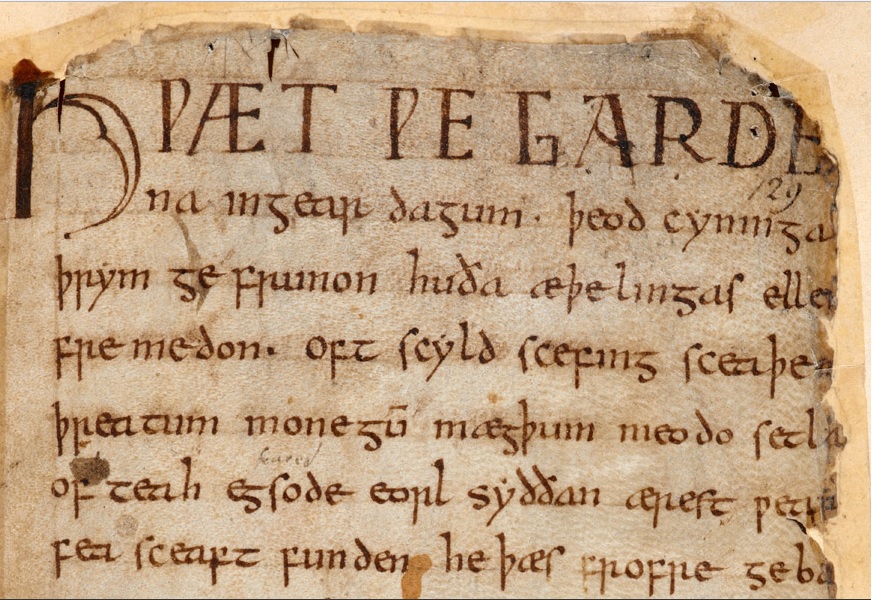 HǷÆT ǷE GARDE
129
na ingear dagum· þeod cyninga
þrym ge frunon huða æþelingas elle
fre medon· oft scyld scefing sceaþe
þreatum monegū mægþum meodo setla
of teah egsode eorl syððan ærest ƿear
fea sceaft funden he þæs frofre geba